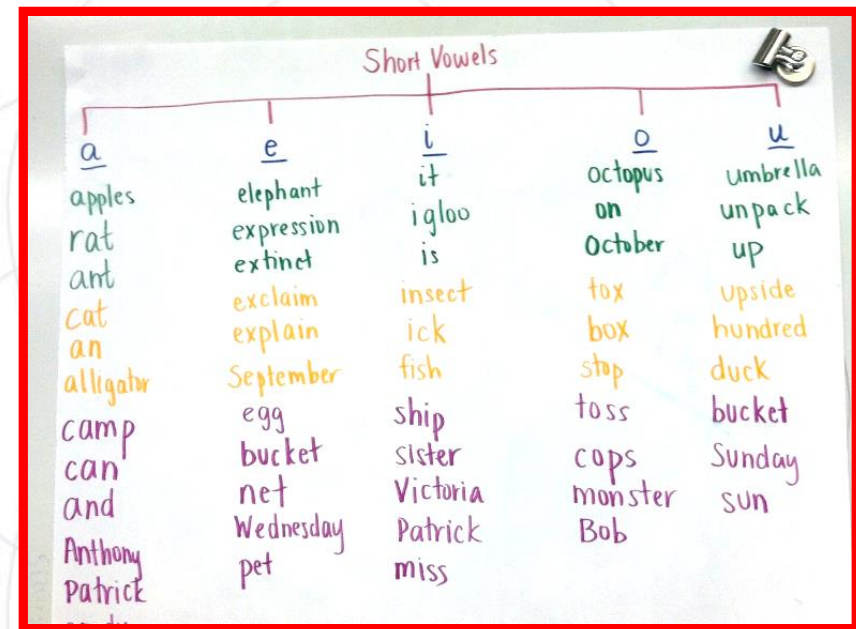 Short Vowels
a
apples
rat
ant
cat
an
alligator
camp
can
and
Anthony
Patrick
e
elephant
expression
extinct
exclaim
explain
September
egg
bucket
net
Wednesday
pet
i
it
igloo
is
insect
ick
fish
ship
sister
Victoria
Patrick
miss
o
octopus
on
October
fox
box
stop
toss
cops
monster
Bob
u
umbrella
unpack
up
upside
hundred
duck
bucket
Sunday
sun